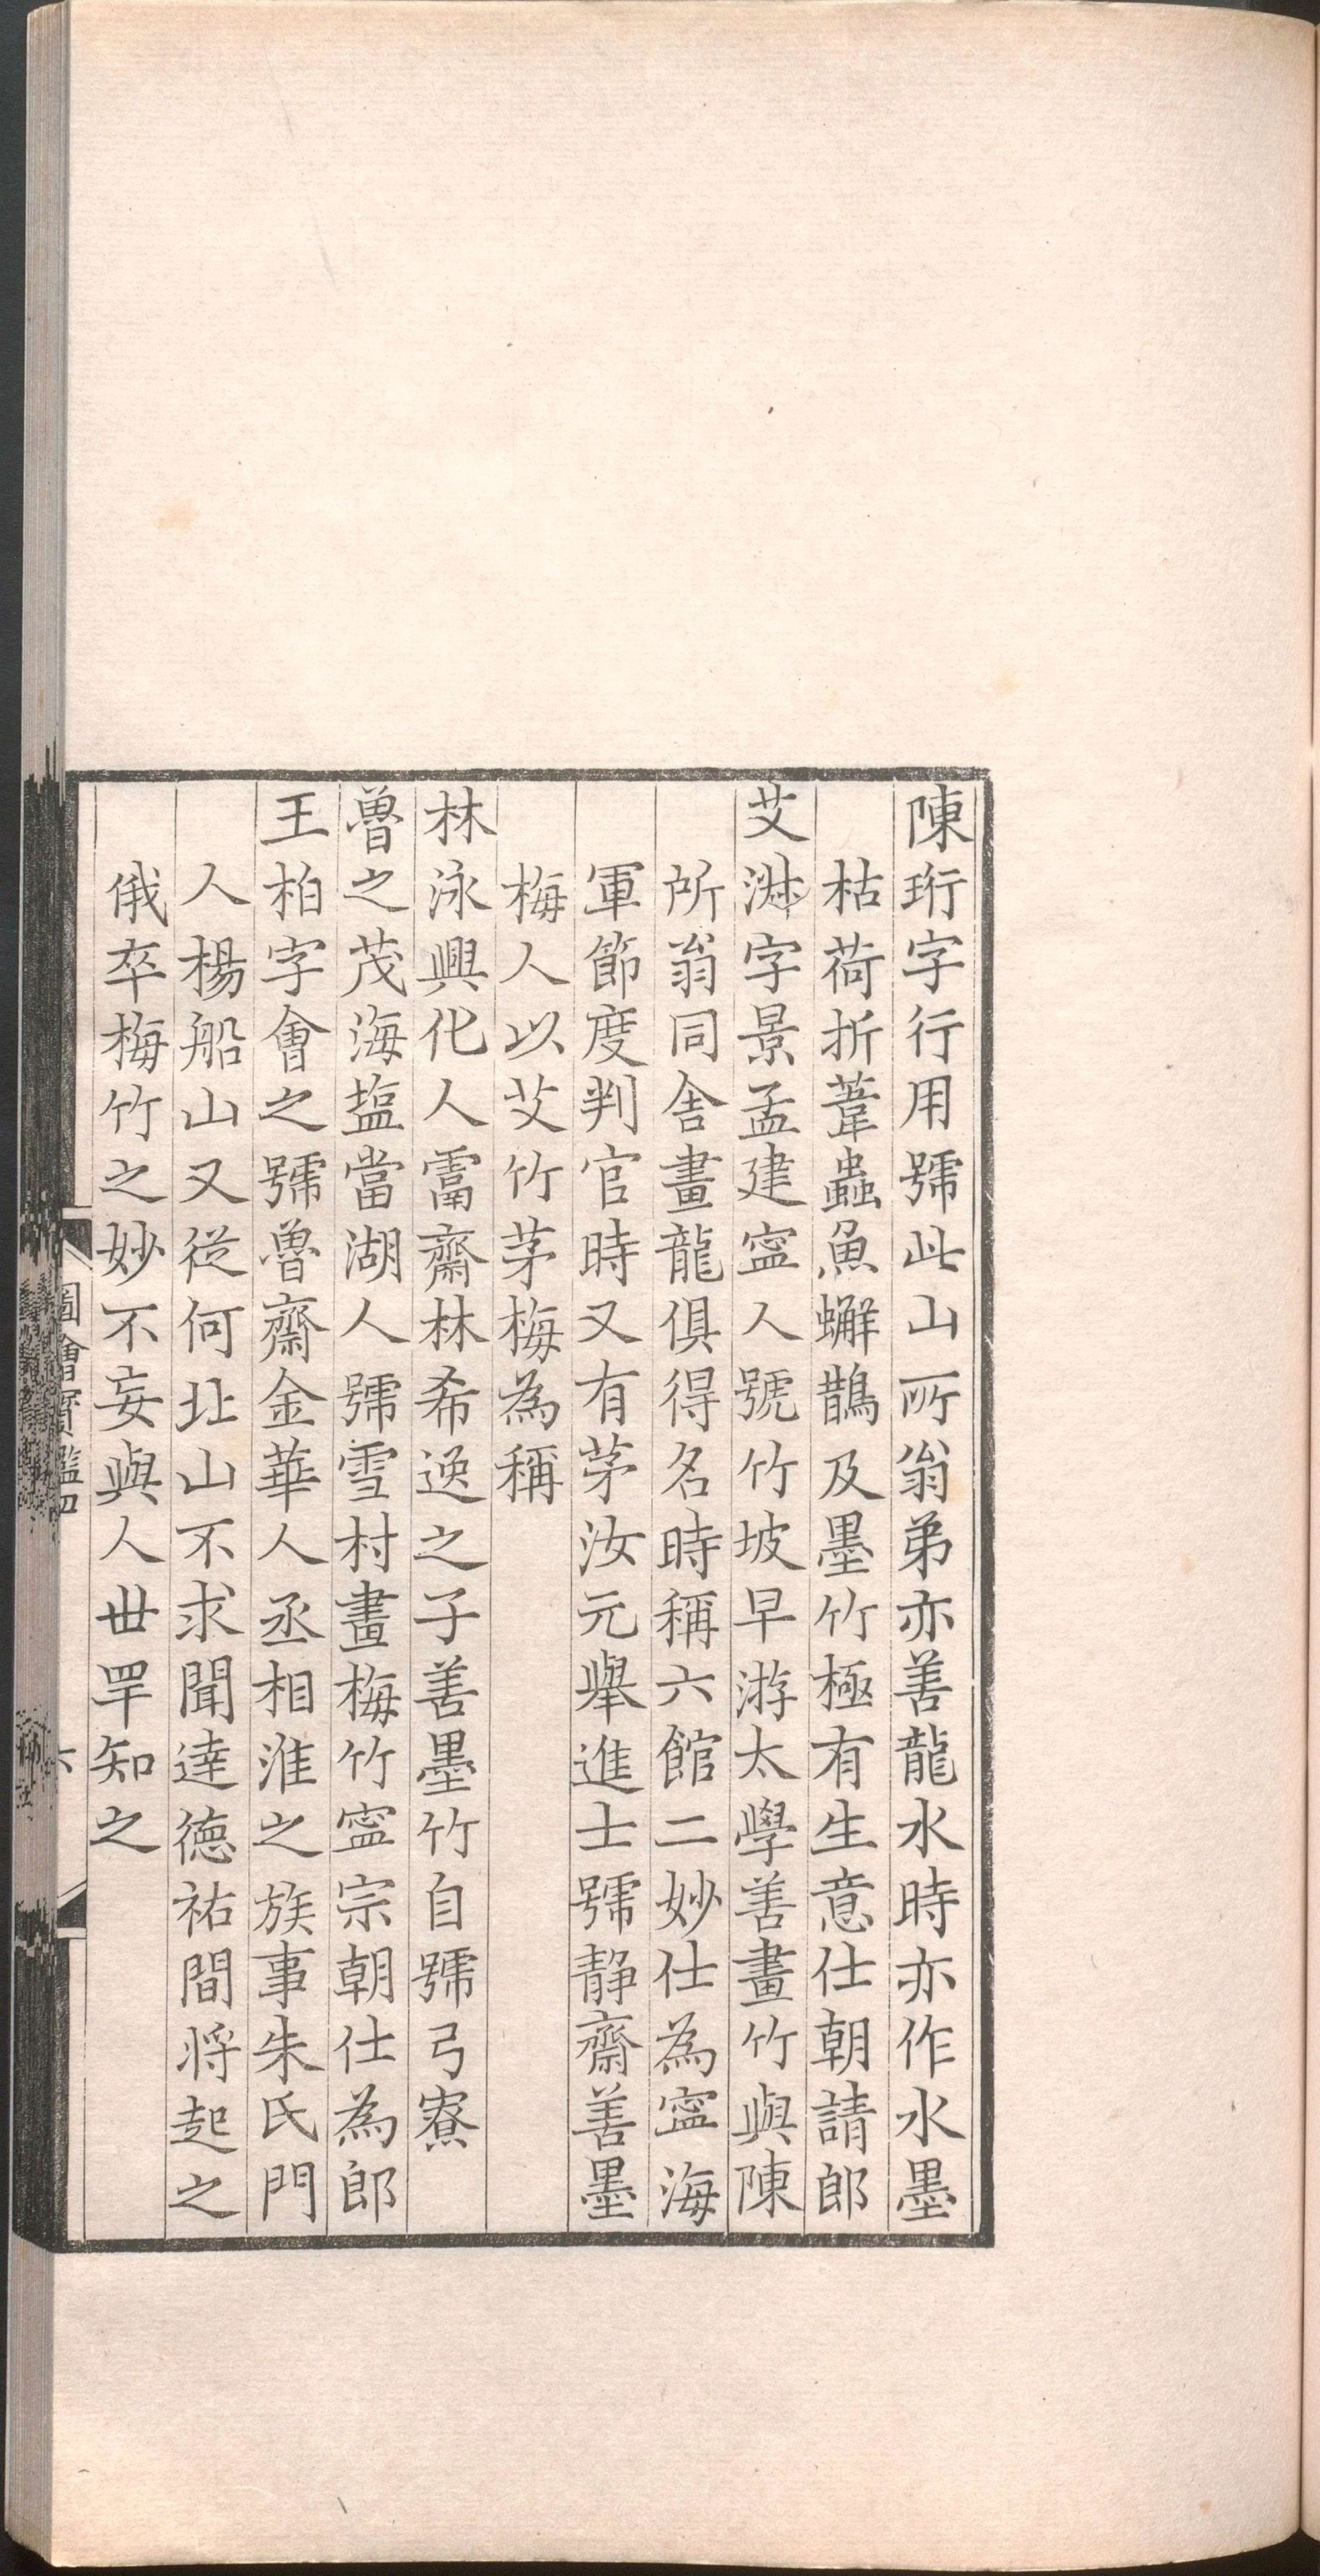 陳珩字行用號此山所翁弟亦善龍水時亦作水墨
枯荷折葦蟲魚蠏鵲及墨竹極有生意仕朝請郎
艾淑字景孟建寧人號竹坡早游太學善畫竹與陳
所翁同舍畫龍俱得名時稱六館二妙仕為寧海
軍節度判官時又有茅汝元舉進士號静齋善墨
梅人以艾竹茅梅為稱
林泳興化人鬳齋林希逸之子善墨竹自號弓寮
魯之茂海塩當湖人號雪村畫梅竹寧宗朝仕為郎
王柏字會之號魯齋金華人丞相淮之族事朱氏門
人楊船山又從何北山不求聞達德祐間將起之
俄卒梅竹之妙不妄與人世罕知之
圖會寶鑑四
六